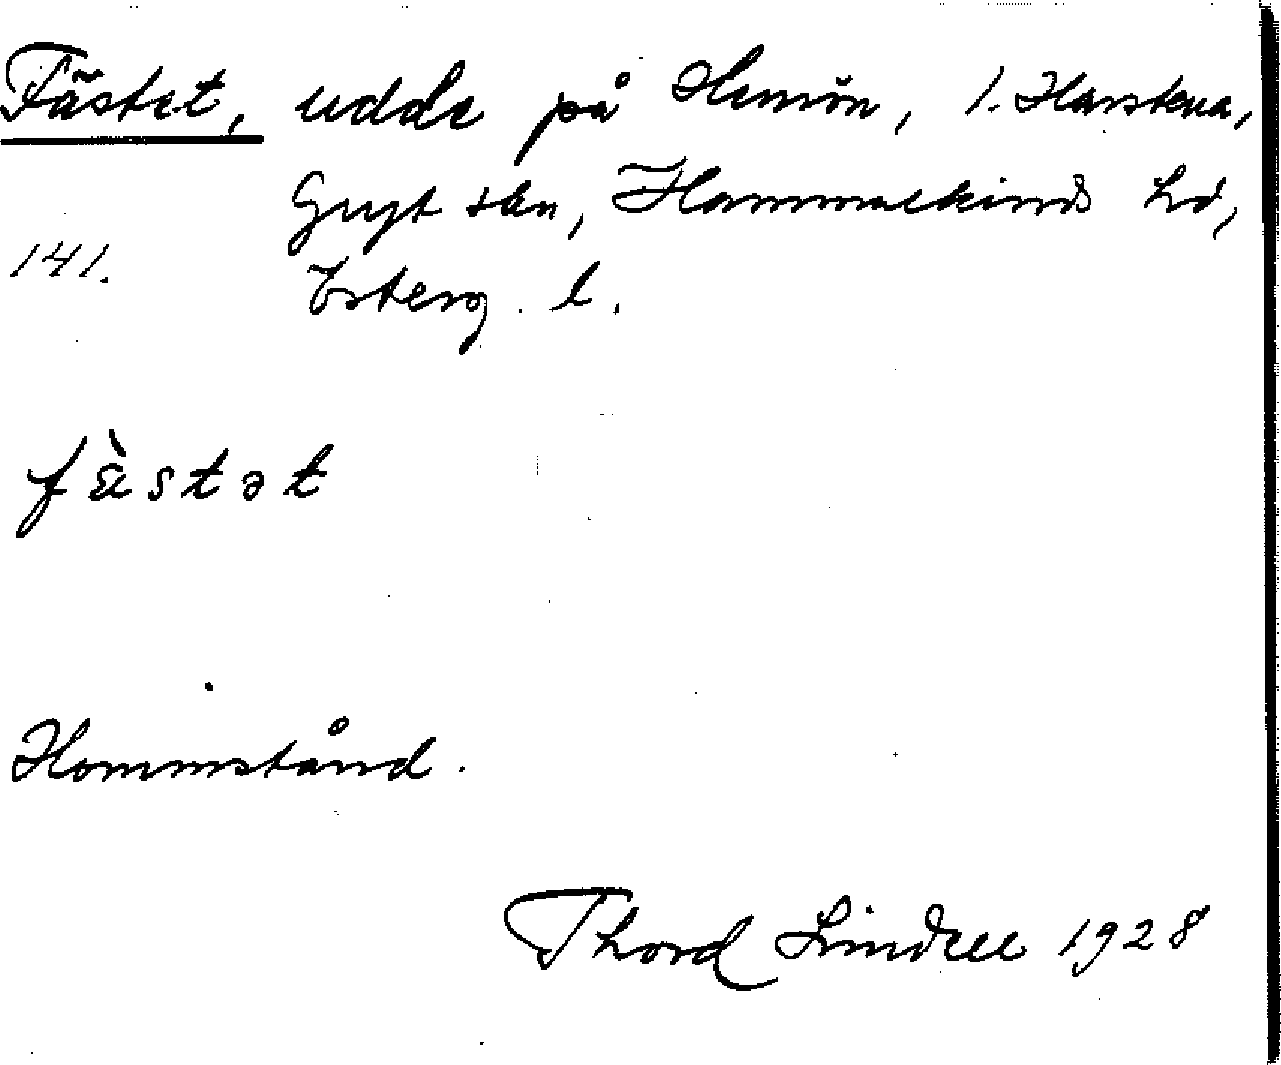 Fästet, udde på Hemön, 1. Harstena,
Gryt skn, Hammarkinds hd,
Österg. l.
141.
fàstət
Hommstånd.
Thord Lindell 1928